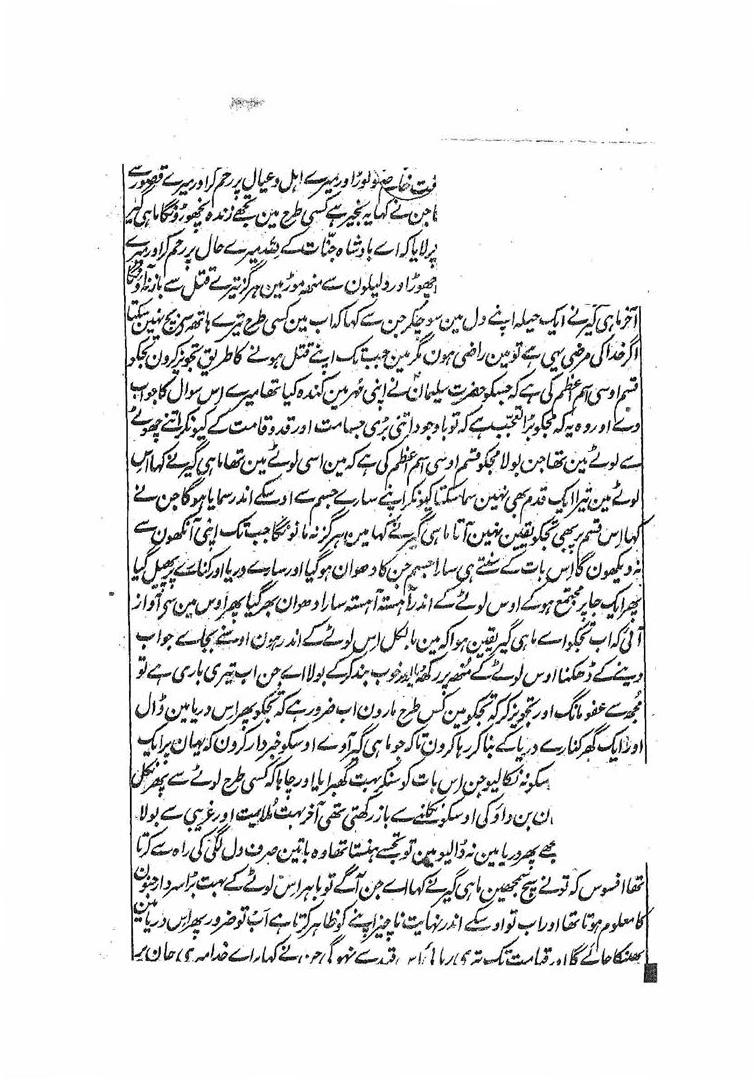 لوڑا اور میرے اہل و عیال پر رحم کر اور میرے قصور سے
جن نے کہا یہ بخیر ہے کسی طرح مین تجھے زندہ نچھوڑونگا ماہی گیر
لایا کہ اے بادشاہ جنّات کے میرے حال پر رحم کر اور میرے
چھوڑا اور دلیلون سے منھ موڑ مین ہرگز تیرے قتل سے باز نہ آؤنگا
آخر ماہی گیر نے ایک حیلہ اپنے دل مین سوچکر جن سے کہا کہ اب مین کسی طرح تیرے ہاتھ سے بچ نہین سکتا
اگر خدا کی مرضی یہی ہے تو مین راضی ہون مگر مین جب تک اپنے قتل ہونے کا طریق تجویز کرون تجکو
قسم اوسی اسم اعظم کی ہے کہ جسکو حضرت سلیمان نے اپنی مُہر مین کندہ کیا تھا میرے اس سوال کا جواب
دے اور وہ یہ کہ مجکو بڑا تعجّب ہے کہ تو باوجود اتنی بڑی جسامت اور قد و قامت کے کیونکر اتنے چھوٹے
سے لوٹے مین تھا جن بولا مجکو قسم اوسی اسم اعظم کی ہے کہ مین اسی لوٹے مین تھا ماہی گیر نے کہا اس
لوٹے مین تیرا ایک قدم بھی نہین سما سکتا کیونکر اپنے سارے جسم سے اوسکے اندر سمایا ہوگا جن نے
کہا اس قسم پر بھی تجکو یقین نہین آتا ماہی گیر نے کہا مین ہرگز نہ مانونگا جب تک اپنی آنکھون سے
نہ دیکھون گا اس بات کے سنتے ہی سارا جسم جن کا دھوان ہوگیا اور سارے دریا اور کنارے پر پھیل گیا
پھر ایک جا پر مجتمع ہوکے اوس لوٹے کے اندر آہستہ آہستہ سارا دھوان بھر گیا پھر اوس مین سے آواز
آئی کہ اب تجکو اے ماہی گیر یقین ہوا کہ مین بالکل اس لوٹے کے اندر ہون اوسنے بجاے جواب
دینے کے ڈھکنا اوس لوٹے کے مُنھ پر رکھ کر خوب بند کرکے بولا اے جن اب تیری باری ہے تو
مُجھ سے عفو مانگ اور تجویز کر کہ تجکو مین کس طرح مارون اب ضرور ہے کہ تجکو پھر اس دریا مین ڈال
اور ایک گھر کنارے دریا کے بنا کر رہا کرون تاکہ جو ماہی گیر آوے اوسکو خبردار کرون کہ یہان پر ایک
سکو نہ نکالیو جن اس بات کو سنکر بہت گھبرایا اور چاہا کہ کسی طرح لوٹے سے پھر نکل
ن بن داؤ کی اوسکو نکلنے سے باز رکھتی تھی آخر بہت ملایمت اور غریبی سے بولا
جھے پھر دریا مین نہ ڈالیو مین تو تجھسے ہنستا تھا وہ باتین صرف دل لگی کی راہ سے کرتا
تھا افسوس کہ تو نے سچ سمجھین ماہی گیر نے کہا اے جن آگے تو باہر اس لوٹے کے بہت بڑا سردار جنون
کا معلوم ہوتا تھا اور اب تو اوسکے اندر نہایت ناچیز اپنے کو ظاہر کرتا ہے اب تو ضرور پھر اس دریا مین
پھینکا جائے گا اور قیامت تک تیری رہائی اس قید سے نہوگی جن نے کہا براے خدا میری جان پر